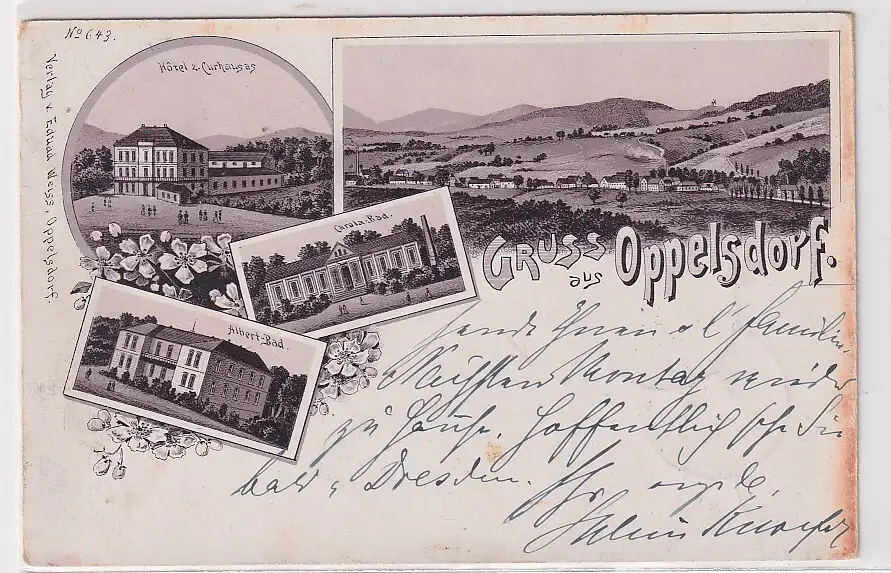 No 643.
Verlag v. Eduard Weiss, Oppelsdorf.
Hôtel z. Curhausas
Carola-Bad.
Albert-Bad.
Gruss
aus Oppelsdorf.
sende Ihnen Familie
Nächsten Montag wieder
zu Hause. Hoffentlich sehe Sie
bald Dresden. Ihr